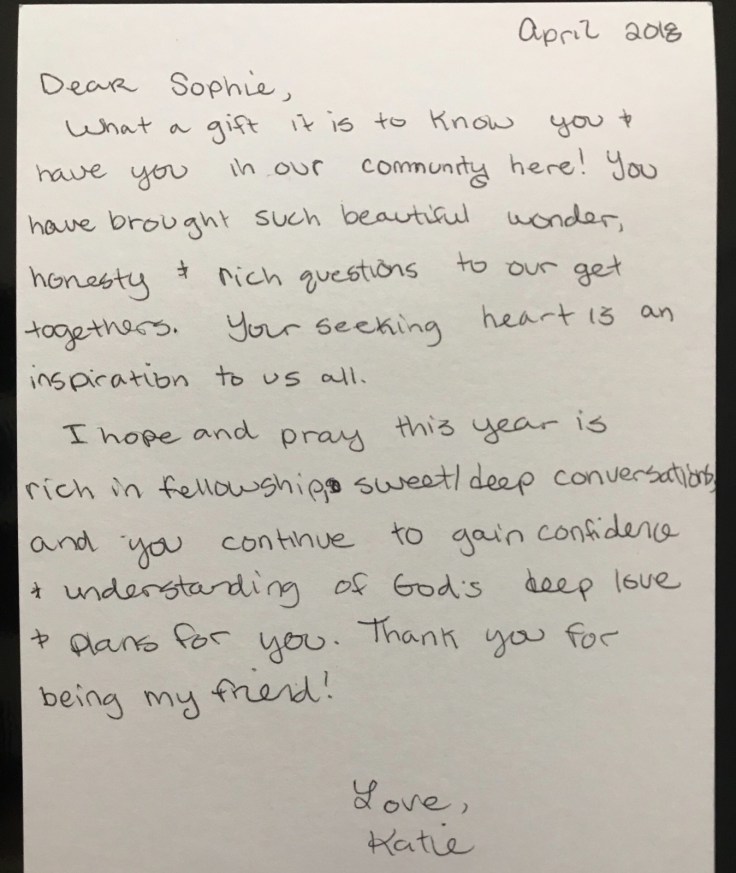 April 2018
Dear Sophie,
What a gift it is to know you +
have you in our community here! You
have brought such beautiful wonder,
honesty + rich questions to our get
togethers. Your seeking heart is an
inspiration to us all.
I hope and pray this year is
rich in fellowship, sweet/deep conversations,
and you continue to gain confidence
+ understanding of God's deep love
+ plans for you. Thank you for
being my friend!
Love,
Katie